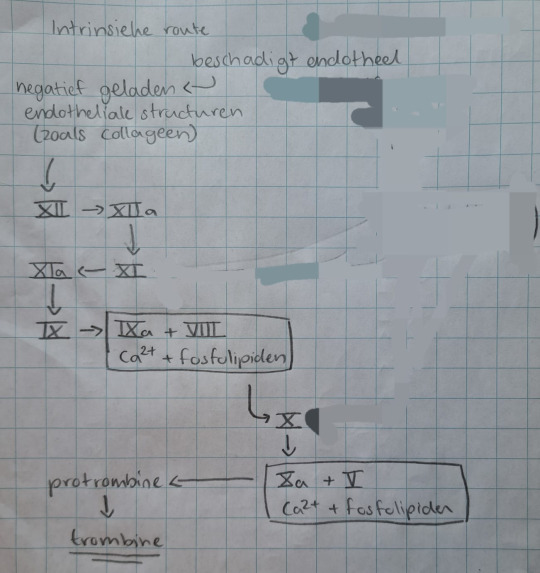 Intrinsieke route
beschadigt endotheel
negatief geladen ←
endotheliale structuren
(zoals collageen)
↓
XII → XIIa
↓
XIa ← XI
↓
IX → IXa + VIII
Ca²⁺ + fosfolipiden
↳ X
↓
Xa + V
protrombine ←
Ca²⁺ + fosfolipiden
↓
trombine